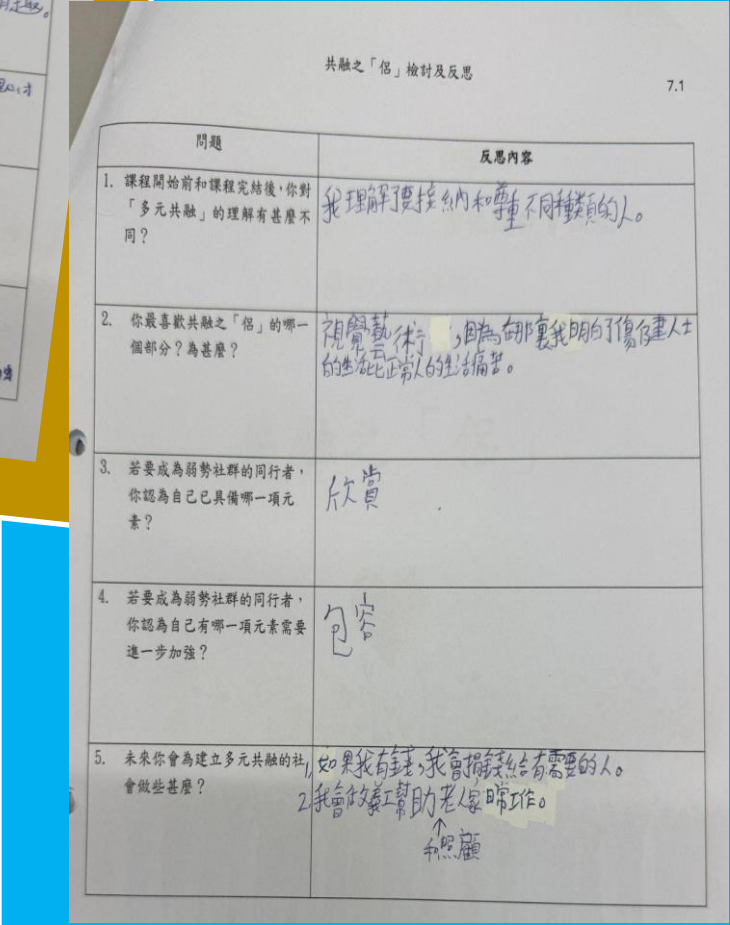 共融之「侶」檢討及反思
7.1
問題
反思內容
1. 課程開始前和課程完結後，你對
「多元共融」的理解有甚麼不
同？
我理解了要接納和尊重不同種類的人。
2. 你最喜歡共融之「侶」的哪一
個部分？為甚麼？
視覺藝術，因為在那裏我明白了傷健人士
的生活比正常人的生活痛苦。
3. 若要成為弱勢社群的同行者，
你認為自己已具備哪一項元
素？
欣賞
4. 若要成為弱勢社群的同行者，
你認為自己有哪一項元素需要
進一步加強？
包容
5. 未來你會為建立多元共融的社
會做些甚麼？
1. 如果我有錢，我會捐錢給有需要的人。
2. 我會做義工幫助老人家日常工作。
↑
和照顧